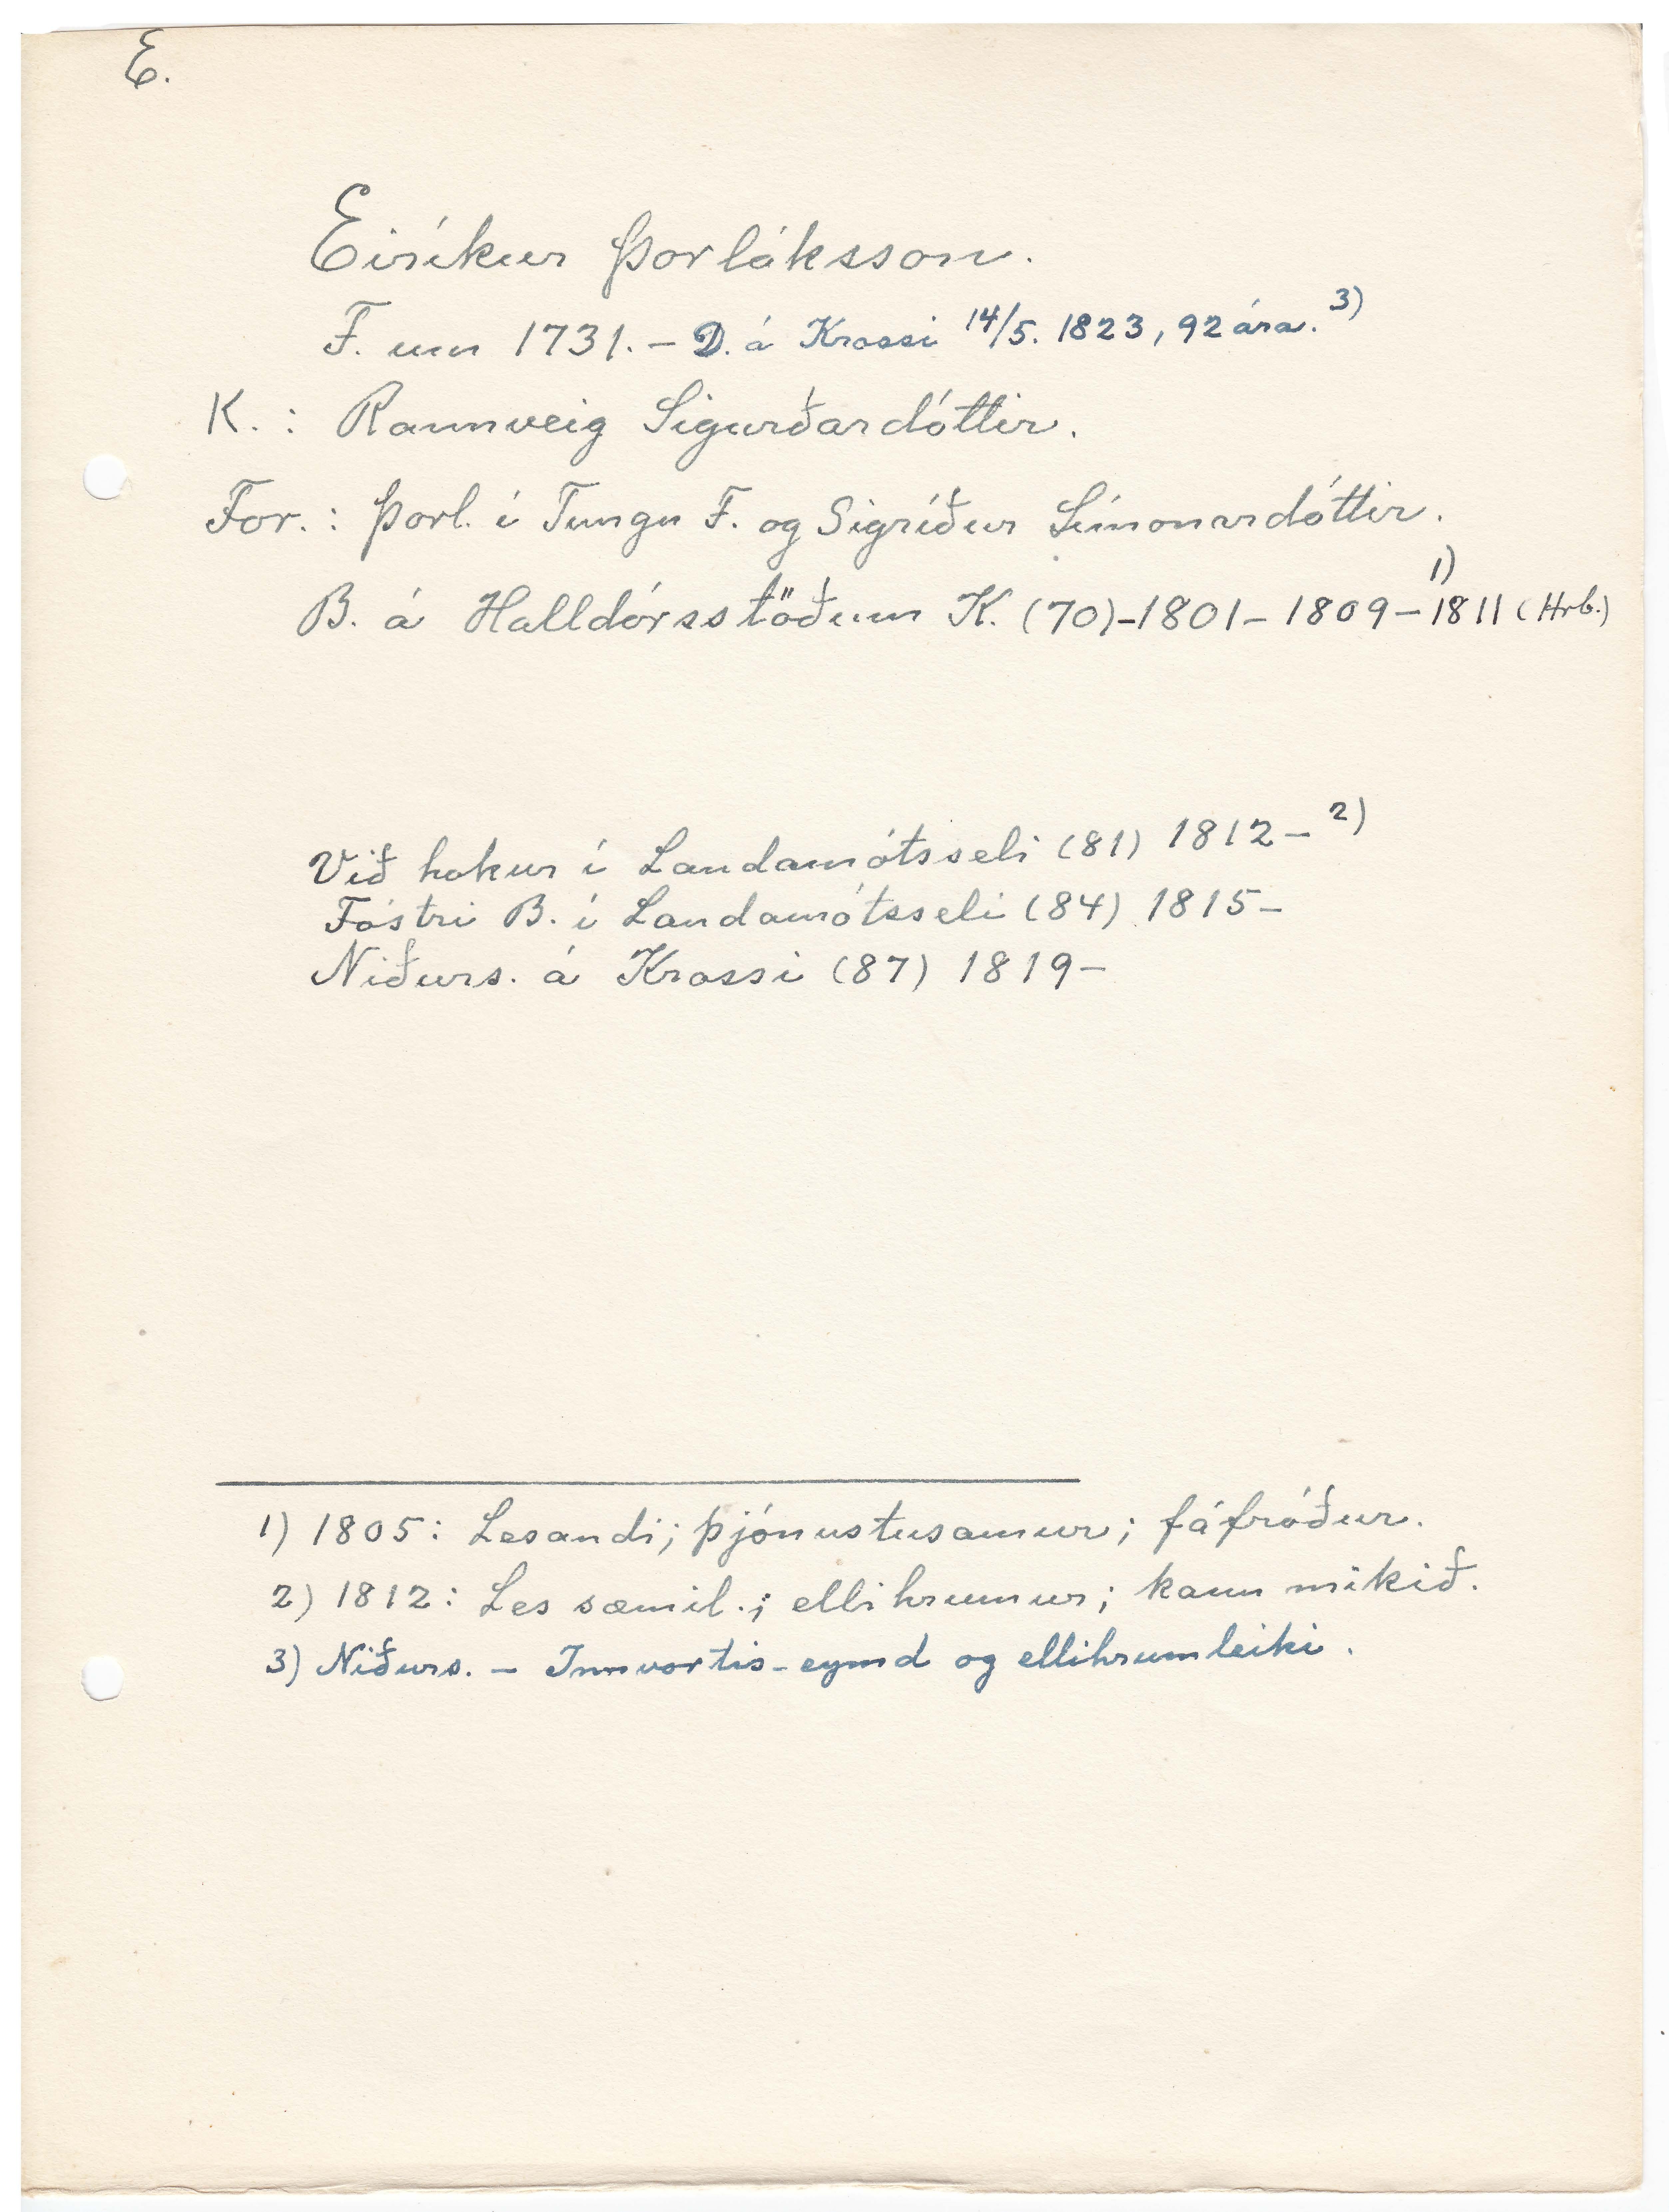 E.
Eiríkur Þorláksson.
F. um 1731. – D. á Krossi 14/5. 1823, 92 ára. 3)
K. : Rannveig Sigurðardóttir.
For. : Þorl. í Tungu F. og Sigríður Símonardóttir.
B. á Halldórsstöðum K. (70) – 1801 – 1809 – 1811 1) (Hrb.)
Við hokur í Landamótsseli (81) 1812 – 2)
Fóstri B. í Landamótsseli (84) 1815 –
Niðurs. á Krossi (87) 1819 –
1) 1805: Lesandi; þjónustusamur; fáfróður.
2) 1812: Les sæmil.; ellihrumur; kann mikið.
3) Niðurs. – Innvortis-eymd og ellihrumleiki.